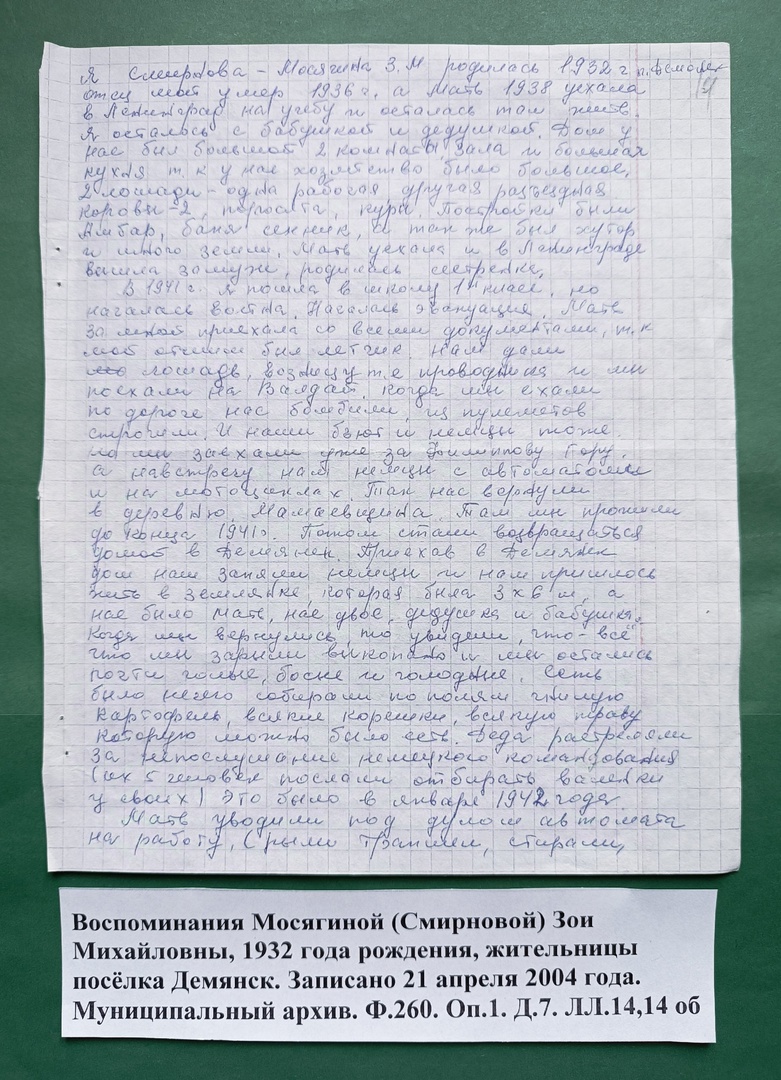 Я Смирнова - Мосягина З.М родилась 1932 г. п. Демянск
отец мой умер 1936 г, а мать 1938 уехала
в Ленинград на учебу и осталась там жить.
Я осталась с бабушкой и дедушкой. Дом у
нас был большой 2 комнаты, зала и большая
кухня т.к у нас хозяйство было большое,
2 лошади - одна рабочая другая разъездная
коровы-2, поросята, куры. Постройки были
Амбар, баня сенник, а так же был хутор
и много земли. Мать уехала и в Ленинграде
вышла замуж, родилась сестренка.
В 1941 г. я пошла в школу 1й класс, но
началась война. Началась эвакуация. Мать
за мной приехала со всеми документами, т.к
мой отчим был летчик. Нам дали
лошадь, возницу т.е проводника и мы
поехали на Валдай. Когда мы ехали
по дороге нас бомбили, из пулеметов
строчили. И наши бьют и немцы тоже.
но мы заехали уже за Филиппову Гору,
а навстречу нам немцы с автоматами
и на мотоциклах. Так нас вернули
в деревню Мамаевщина. Там мы прожили
до конца 1941г. Потом стали возвращаться
домой в Демянск. Приехав в Демянск
дом наш заняли немцы и нам пришлось
жить в землянке, которая была 3 х 6 м, а
нас было мать, нас двое, дедушка и бабушка.
Когда мы вернулись, то увидели, что - всё
что мы зарыли выкопано и мы остались
почти голые, босые и голодные. Есть
было нечего собирали по полям гнилую
картофель, всякие корешки, всякую траву
которую можно было есть. Деда растреляли
за непослушание немецкого командования
(их 5 человек послали отбирать валенки
у своих) Это было в январе 1942 года.
Мать уводили под дулом автомата
на работу, (рыли траншеи, стирали,
Воспоминания Мосягиной (Смирновой) Зои
Михайловны, 1932 года рождения, жительницы
посёлка Демянск. Записано 21 апреля 2004 года.
Муниципальный архив. Ф.260. Оп.1. Д.7. ЛЛ.14,14 об